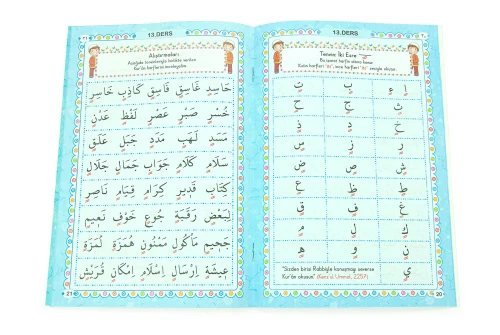 13.DERS
Tenvin: İki Esre
Bu işaret harfin altına konur.
Kalın harfleri "ın", ince harfleri "in" sesiyle okutur.
إٍ ءٍ بٍ تٍ
ثٍ جٍ حٍ
خٍ دٍ ذٍ
رٍ زٍ سٍ
شٍ صٍ ضٍ
طٍ ظٍ عٍ
غٍ فٍ قٍ
كٍ لٍ مٍ
نٍ وٍ هٍ
يٍ
"Sizden birisi Rabbiyle konuşmayı severse
Kur'ân okusun." (Kenzü'l Ummal, 2257)
20
13.DERS
Alıştırmalar:
Aşağıda tenvinlerle birlikte verilen
Kur'ân harflerini inceleyelim.
حَاسِدٍ غَاسِقٍ فَاسِقٍ كَاذِبٍ خَاسِرٍ
خُسْرٍ صَبْرٍ عَصْرٍ لَفْظٍ عَدْنٍ
مَسَدٍ لَهَبٍ مَدَدٍ جَبَلٍ عَلَقٍ
سَلَامٍ كَلَامٍ جَوَابٍ جَمَالٍ جَلَالٍ
كِتَابٍ قَدِيرٍ كِرَامٍ قِيَامٍ نَاصِرٍ
لِبَعْضٍ رَقَبَةٍ جُوعٍ خَوْفٍ نَعِيمٍ
جَحِيمٍ مَأْكُولٍ مَمْنُونٍ هُمَزَةٍ لُمَزَةٍ
عِيشَةٍ اِرْسَالٍ اِسْلَامٍ اِمْكَانٍ قُرَيْشٍ
21